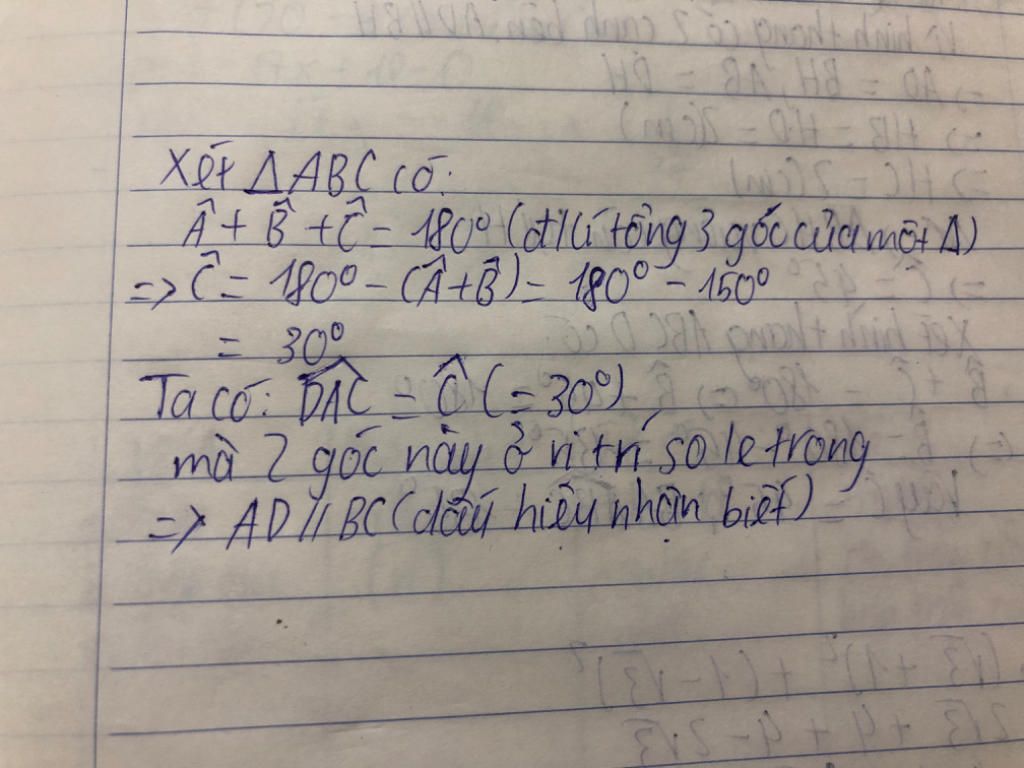 Xét ΔABC có:
Â + B̂ + Ĉ = 180° (đ/lí tổng 3 góc của một Δ)
=> Ĉ = 180° - (Â + B̂) = 180° - 150°
= 30°
Ta có: \widehat{DAC} = Ĉ (= 30°)
mà 2 góc này ở vị trí so le trong
=> AD // BC (dấu hiệu nhận biết)